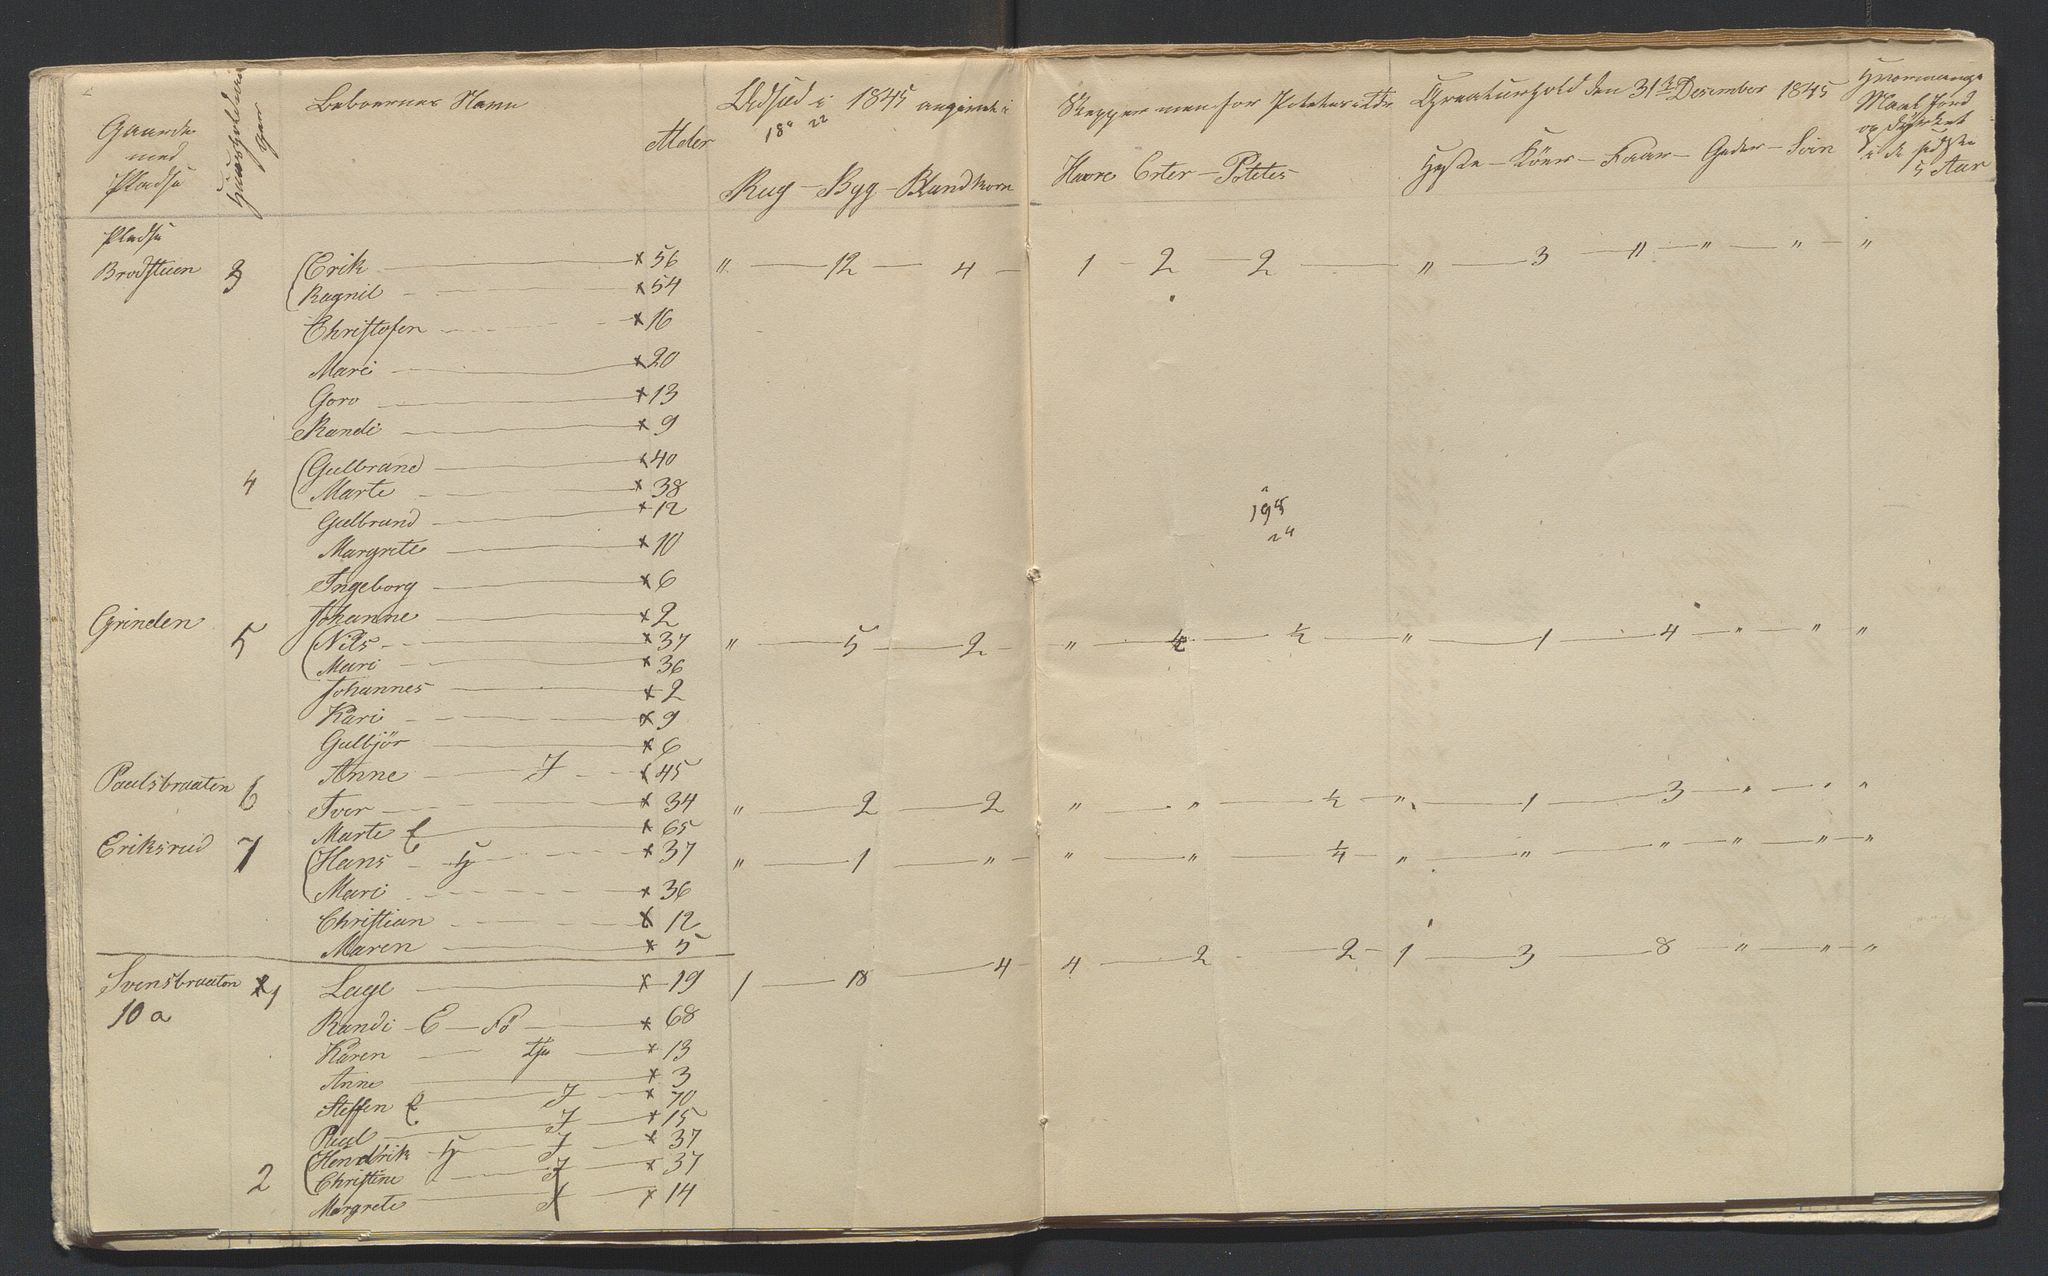 Gaarde
med
Pladse
Huusholdnin
ger
Beboernes Navn
Alder
Udsæd i 1845 angivet i
Skepper men for Poteter i Tdr
Creaturhold den 31te Desember 1845
Hvormange
Maal Jord
opdyrket
i de sidste
5 Aar
Rug - Byg - Blandkorn
Havre Erter - Potetes
Heste - Köer - Faar - Geder - Svin
Pladse
Brodstuen 3 Erik × 56 " 12 4 1 2 2 " 3 " " " "
Ragnil × 54
Christofen × 16
Mari × 20
Goro × 13
Randi × 9
4 Gulbrand × 40
Marte × 38
Gulbrand × 12
Margrete × 10
Ingeborg × 6
Johanne × 2
Grinden 5 Nils × 37 " 5 2 " ½ " 1 4 " " "
Mari × 36
Johannes × 2
Kari × 9
Gulbjör × 6
Anne J × 45
Paulsbraaten 6 Iver × 34 " 2 2 " " ½ " 1 3 " " "
Marte E × 65
Eriksrud 7 Hans H × 37 " 1 " " " ¼ " " " " " "
Mari × 36
Christian × 12
Maren × 5
Svensbraaten 1 Lage × 19 1 18 4 4 2 2 1 3 8 " " "
10 a
Randi E Fö × 68
Karen Tje × 13
Anne × 3
Steffen E J × 70
Paul J × 15
2 Hendrik H J × 37
Christine J × 37
Margrete J × 14